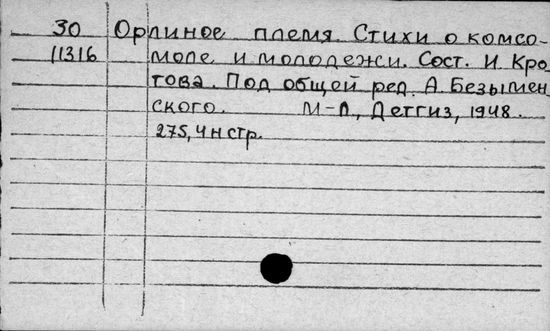 30 Орлиное племя. Стихи о комсо-
11316 моле и молодежи. Сост. И. Кро
това. Под общей ред. А. Безымен
ского. М-Л., Детгиз, 1948.
275, 4 н стр.